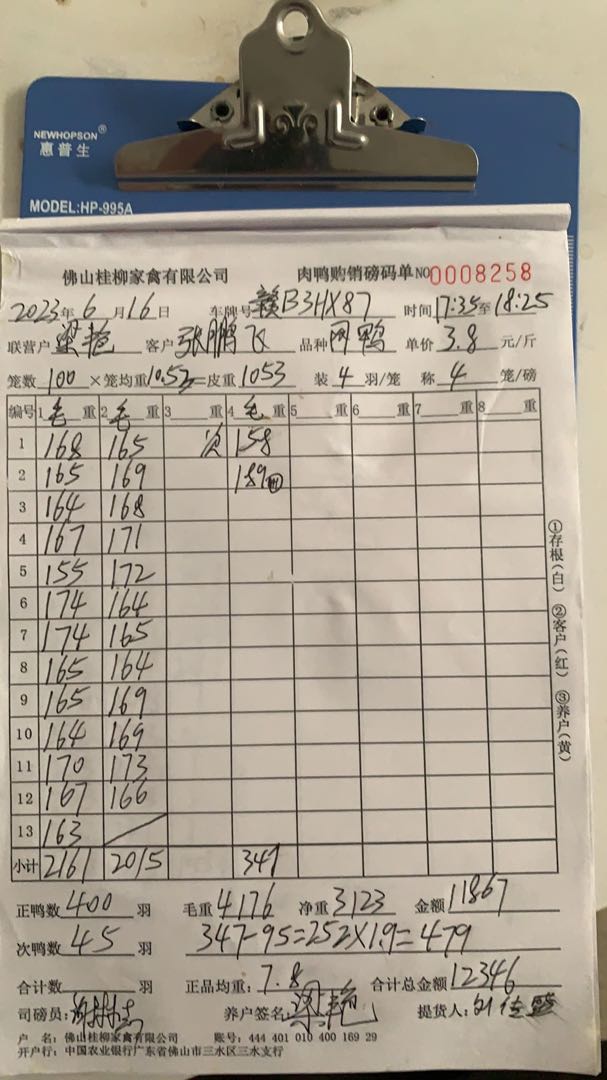 NEWHOPSON®
惠普生
MODEL:HP-995A
佛山桂柳家禽有限公司 肉鸭购销磅码单 NO 0008258
2023年6月16日 车牌号 赣B3HX87 时间 17:35至18:25
联营户 梁艳 客户 张鹏飞 品种 肉鸭 单价 3.8 元/斤
笼数 100 ×笼均重 10.53 =皮重 1053 装 4 羽/笼 称 4 笼/磅
编号 1 毛 重 2 毛 重 3 重 4 毛 重 5 重 6 重 7 重 8 重
1 168 165 次 158
2 165 169 189
3 164 168
4 167 171
5 155 172
6 174 164
7 174 165
8 165 164
9 165 169
10 164 169
11 170 173
12 167 166
13 163
小计 2161 2015 347
①存根(白) ②客户(红) ③养户(黄)
正鸭数 400 羽 毛重 4176 净重 3123 金额 11867
次鸭数 45 羽 347-95=252×1.9=479
合计数 羽 正品均重: 7.8 合计总金额 12346
司磅员: 养户签名: 梁艳 提货人:
户 名: 佛山桂柳家禽有限公司 账号: 444 401 010 400 169 29
开户行: 中国农业银行广东省佛山市三水区三水支行